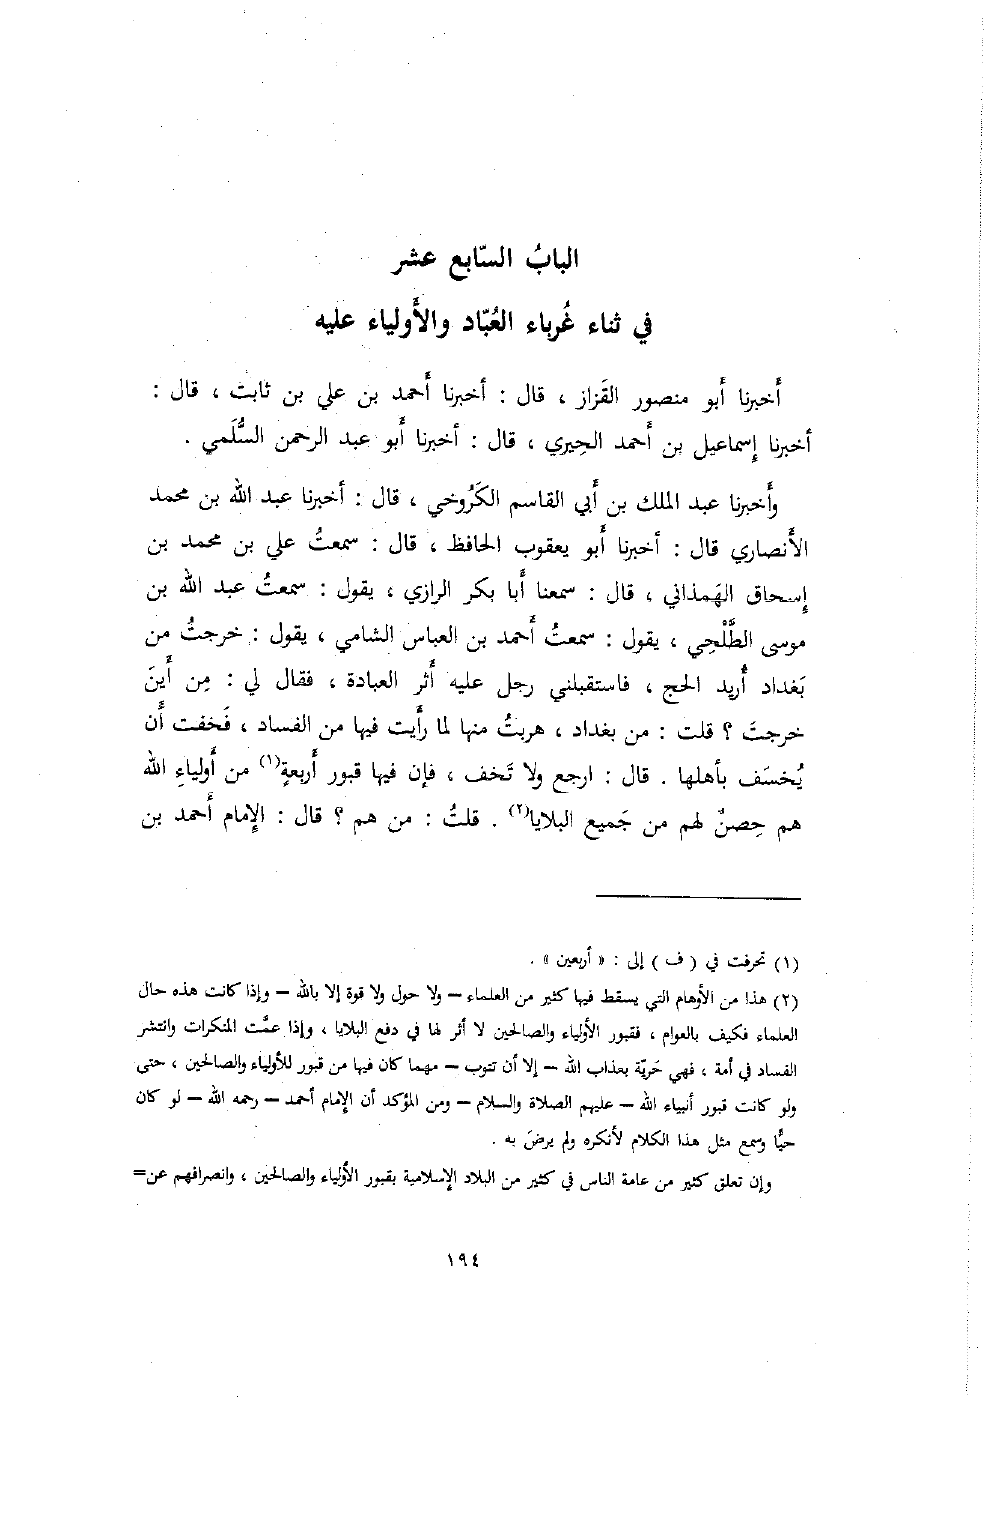 البابُ السّابع عشر
في ثناء غُرباء العُبّاد والأَولياء عليه
أَخبرنا أَبو منصور القَزاز ، قال : أخبرنا أَحمد بن علي بن ثابت ، قال :
أخبرنا إِسماعيل بن أَحمد الحِيري ، قال : أخبرنا أَبو عبد الرحمن السُّلَمي .
وأَخبرنا عبد الملك بن أَبي القاسم الكَرُوخي ، قال : أخبرنا عبد الله بن محمد
الأَنصاري قال : أخبرنا أَبو يعقوب الحافظ ، قال : سمعتُ علي بن محمد بن
إِسحاق الهَمذاني ، قال : سمعنا أَبا بكر الرازي ، يقول : سمعتُ عبد الله بن
موسى الطَّلْحِي ، يقول : سمعتُ أَحمد بن العباس الشامي ، يقول : خرجتُ من
بَغداد أُريد الحج ، فاستقبلني رجل عليه أَثر العبادة ، فقال لي : مِن أَينَ
خرجتَ ؟ قلت : من بغداد ، هربتُ منها لما رأَيت فيها من الفساد ، فَخفت أَن
يُخسَف بأهلها . قال : ارجع ولا تَخف ، فإن فيها قبور أَربعةٍ(١) من أَولياءِ الله
هم حِصنٌ لهم من جَميع البلايا(٢) . قلتُ : من هم ؟ قال : الإِمام أَحمد بن
(١) تحرفت في ( ف ) إلى : « أربعين » .
(٢) هذا من الأوهام التي يسقط فيها كثير من العلماء – ولا حول ولا قوة إلا بالله – وإذا كانت هذه حال
العلماء فكيف بالعوام ، فقبور الأولياء والصالحين لا أثر لها في دفع البلايا ، وإذا عمَّت المنكرات وانتشر
الفساد في أمة ، فهي حَريّة بعذاب الله – إلا أن تتوب – مهما كان فيها من قبور للأولياء والصالحين ، حتى
ولو كانت قبور أنبياء الله – عليهم الصلاة والسلام – ومن المؤكد أن الإمام أحمد – رحمه الله – لو كان
حيًّا وسمع مثل هذا الكلام لأنكره ولم يرضَ به .
وإن تعلق كثير من عامة الناس في كثير من البلاد الإسلامية بقبور الأولياء والصالحين ، وانصرافهم عن=
١٩٤